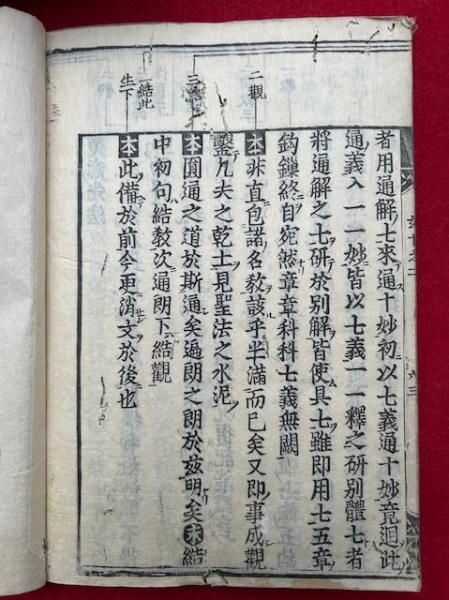 者用通解七來通十妙初以七義通十妙竟迴此
通義入一一妙皆以七義一一釋之研別體七者
將通解之七研於別解皆使具七雖即用七五章
鈎鏁終自宛然章章科科七義無闕
本非直包諸名教該乎半滿而已矣又即事成觀
鑿凡夫之乾土見聖法之水泥
本圓通之道於斯通矣遍朗之朗於茲明矣末結
中初句結教次通朗下結觀
本此備於前今更消文於後也
二觀
三結
二結此
生下